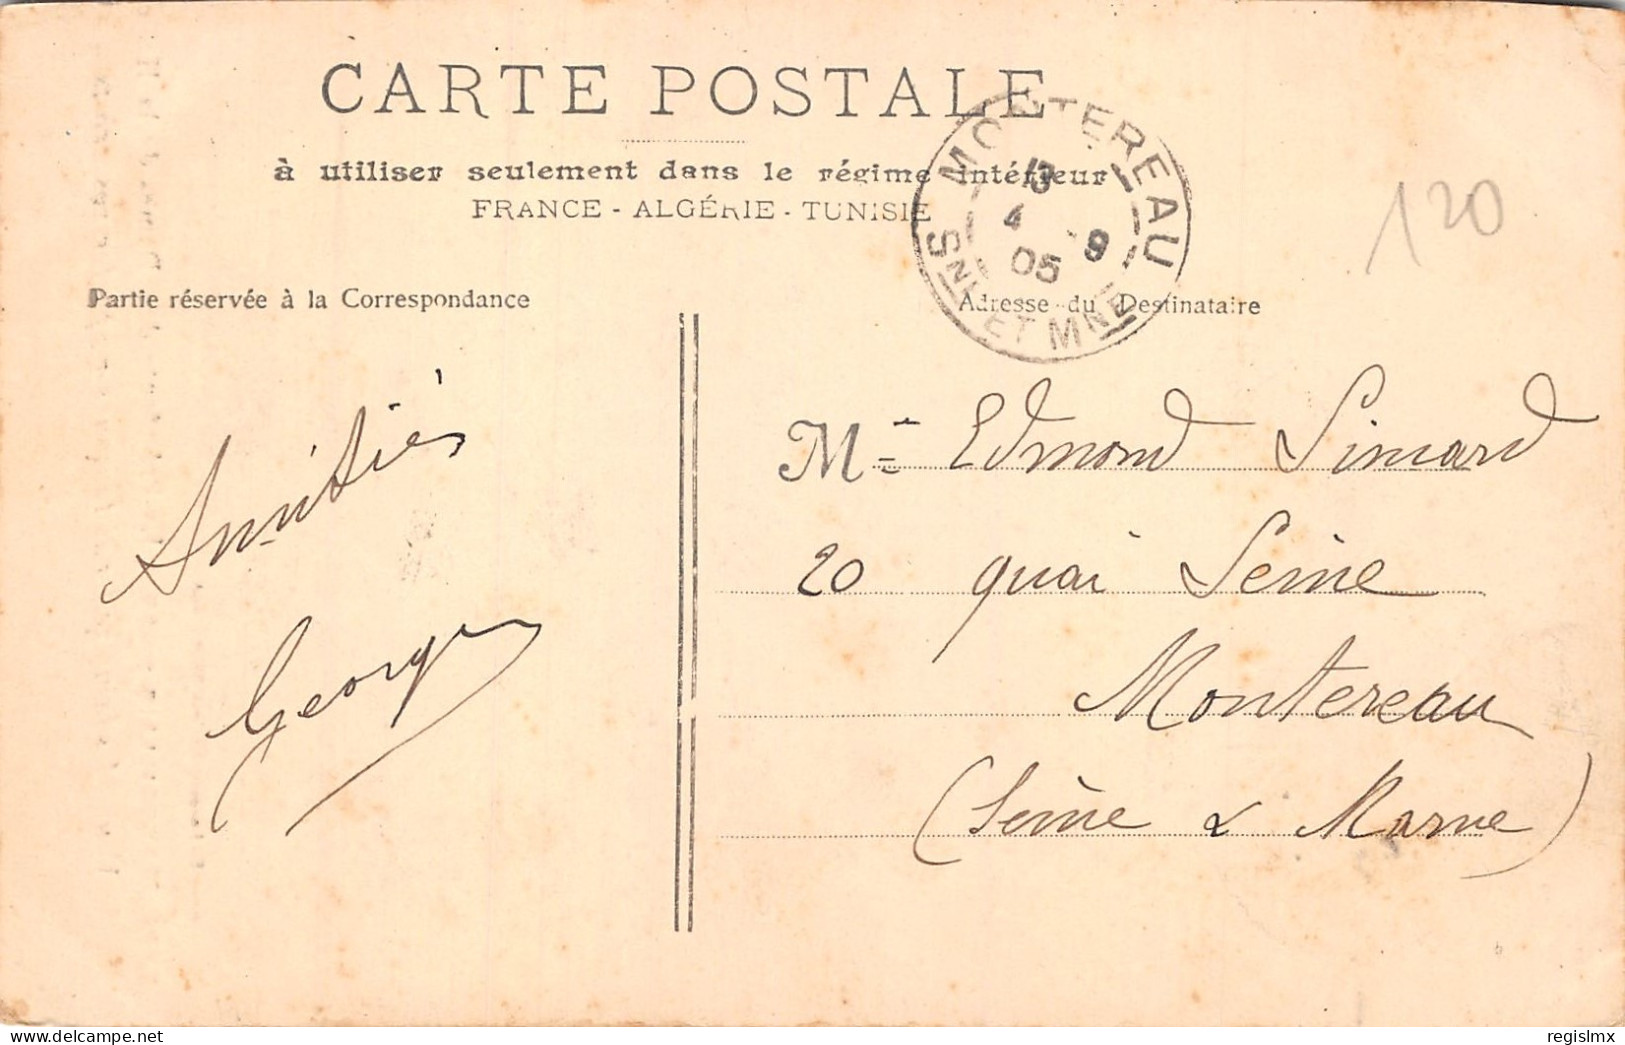 CARTE POSTALE
à utiliser seulement dans le régime intérieur
FRANCE - ALGÉRIE - TUNISIE
MONTEREAU
13
4 - 9
05
SNE ET MNE
120
Partie réservée à la Correspondance
Adresse du Destinataire
Amitiés
Georges
Mr Edmond Simard
20 quai Seine
Montereau
(Seine & Marne)
delcampe.net
regislmx